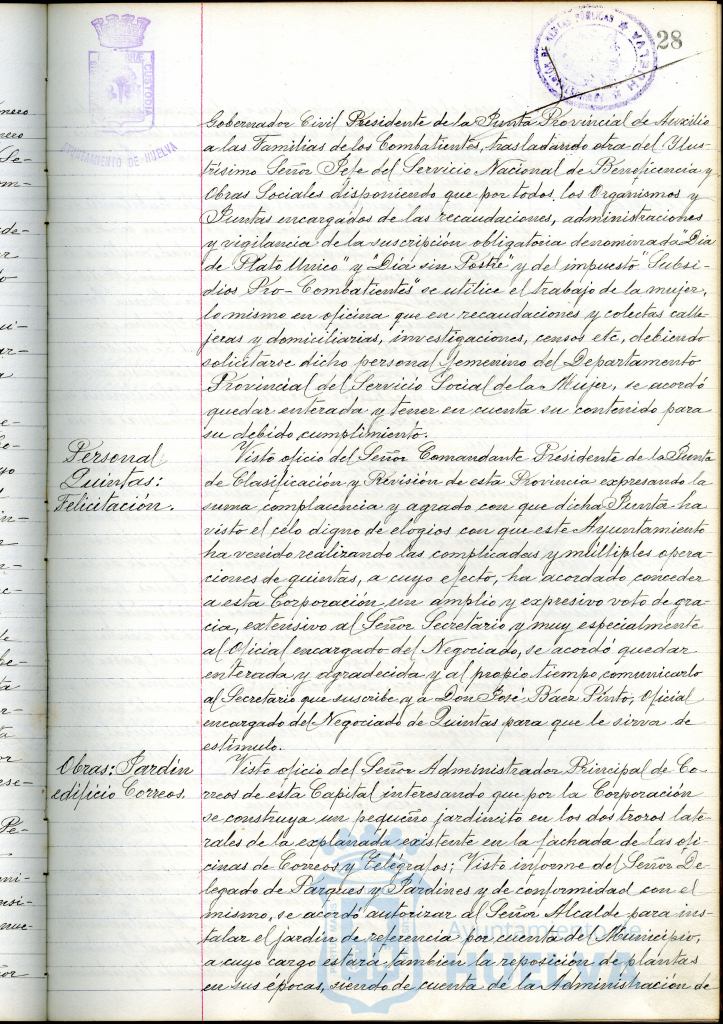 28
AYUNTAMIENTO DE HUELVA
CUSTODIA
HUELVA
Gobernador Civil Presidente de la Junta Provincial de Auxilio
a las Familias de los Combatientes, trasladando otra del Ylus-
trísimo Señor Jefe del Servicio Nacional de Beneficencia y
Obras Sociales disponiendo que por todos los Organismos y
Juntas encargados de las recaudaciones, administraciones
y vigilancia de la suscripción obligatoria denominada "Dia
de Plato Unico" y "Dia sin Postre" y del impuesto "Subsi-
dios Pro-Combatientes" se utilice el trabajo de la mujer,
lo mismo en oficina que en recaudaciones y colectas calle-
jeras y domiciliarias, investigaciones, censos etc, debiendo
solicitarse dicho personal femenino del Departamento
Provincial del Servicio Social de la Mujer, se acordó
quedar enterada y tener en cuenta su contenido para
su debido cumplimiento.
Personal
Quintas:
Felicitación.
Visto oficio del Señor Comandante Presidente de la Junta
de Clasificación y Revisión de esta Provincia expresando la
suma complacencia y agrado con que dicha Junta ha
visto el celo digno de elogios con que este Ayuntamiento
ha venido realizando las complicadas y múltiples opera-
ciones de quintas, a cuyo efecto, ha acordado conceder
a esta Corporación un amplio y expresivo voto de gra-
cia, extensivo al Señor Secretario y muy especialmente
al Oficial encargado del Negociado, se acordó quedar
enterada y agradecida y al propio tiempo comunicarlo
al Secretario que suscribe y a Don José Báez Pinto, Oficial
encargado del Negociado de Quintas para que le sirva de
estímulo.
Obras: Jardín
edificio Correos.
Visto oficio del Señor Administrador Principal de Co-
rreos de esta Capital interesando que por la Corporación
se construya un pequeño jardincito en los dos trozos late-
rales de la explanada existente en la fachada de las ofi-
cinas de Correos y Telégrafos; Visto informe del Señor De-
legado de Parques y Jardines y de conformidad con el
mismo, se acordó autorizar al Señor Alcalde para ins-
talar el jardín de referencia por cuenta del Municipio,
a cuyo cargo estará tambien la reposición de plantas
en sus epocas, siendo de cuenta de la Administración de
Ayuntamiento de
HUELVA